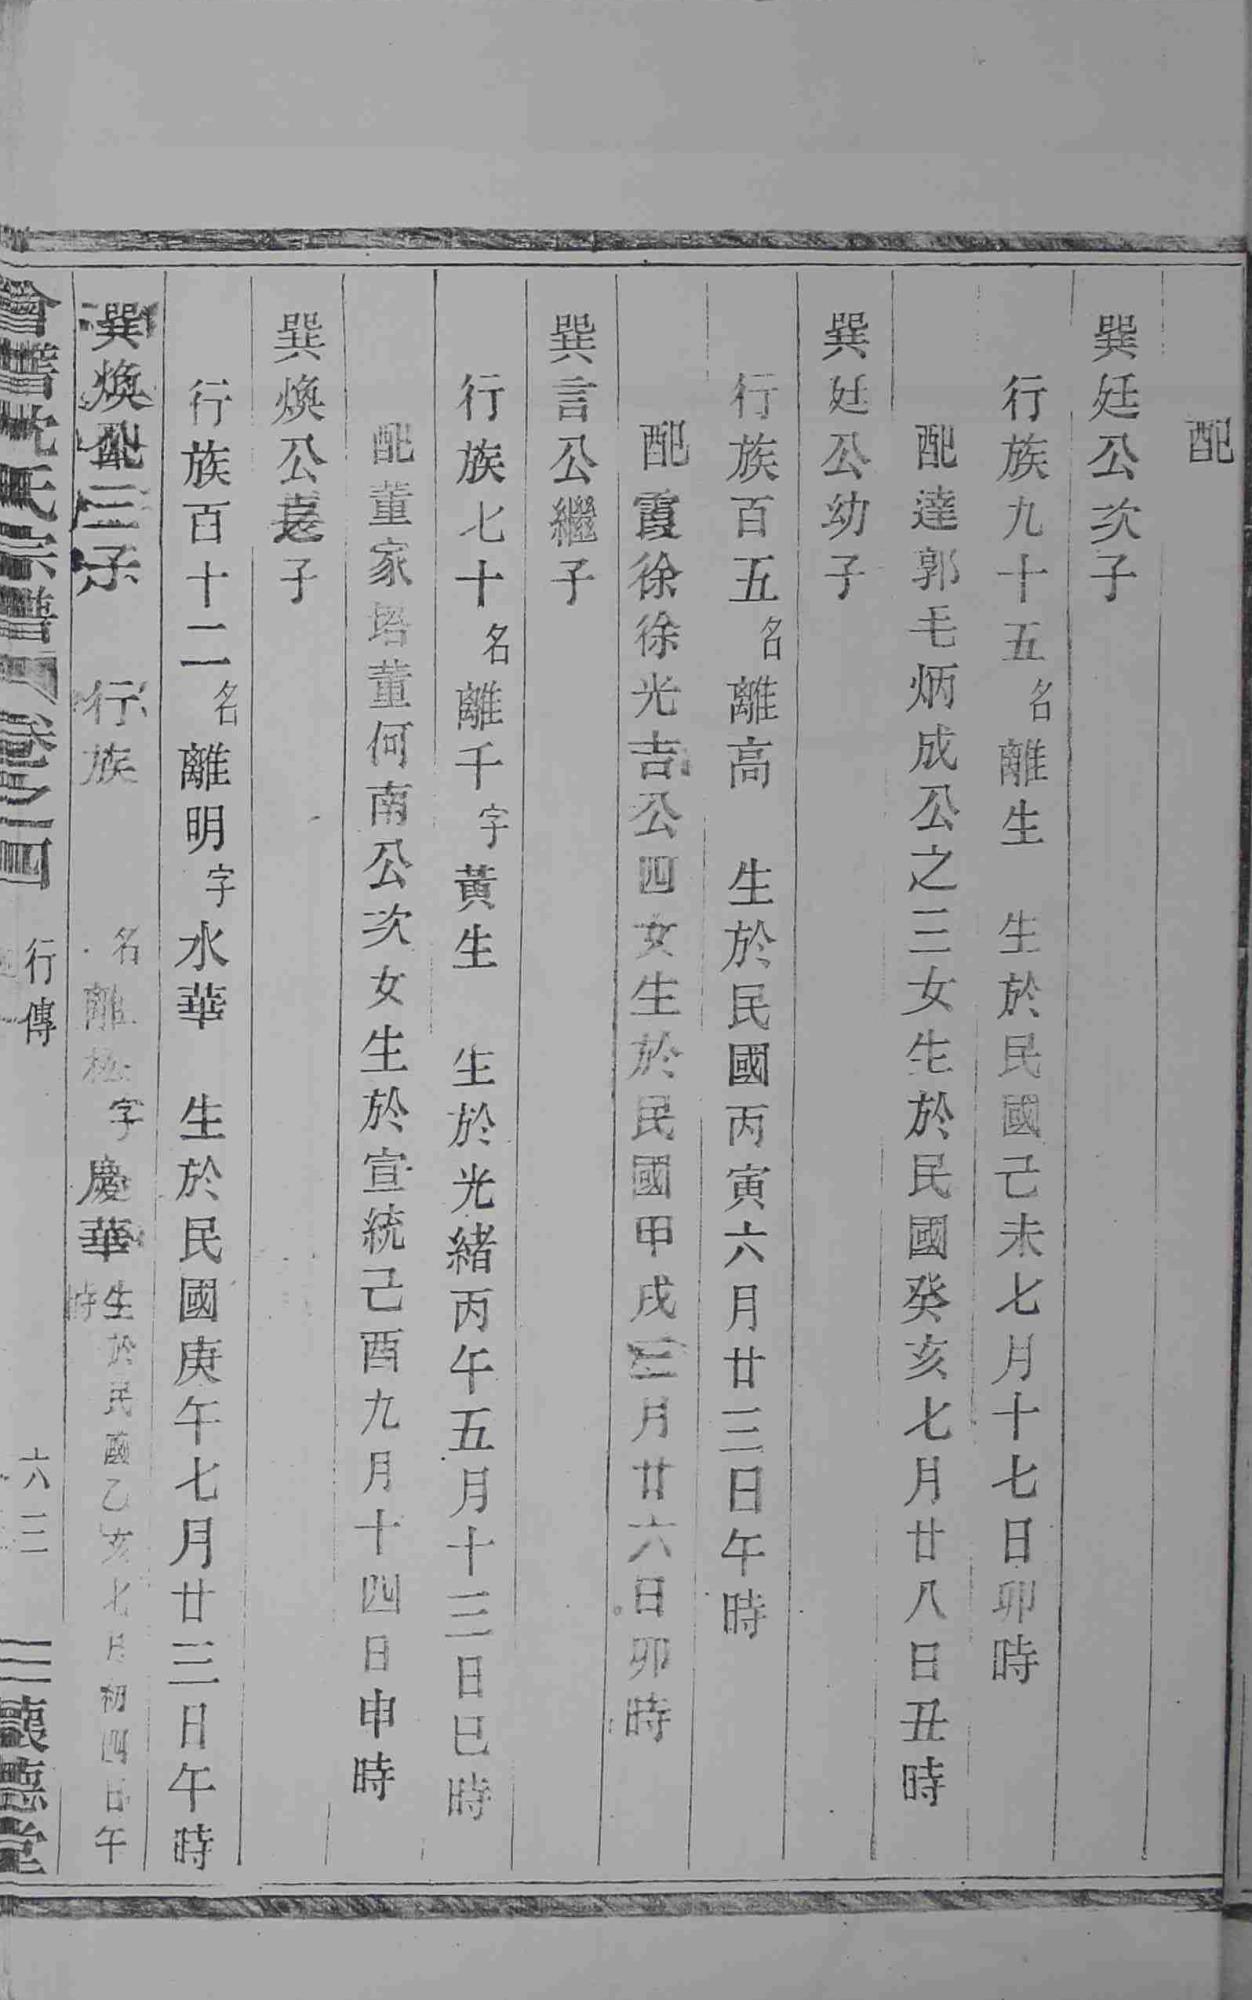 配
巽廷公次子
行族九十五名離生　生於民國己未七月十七日卯時
配達郭毛炳成公之三女生於民國癸亥七月廿八日丑時
巽廷公幼子
行族百五名離高　生於民國丙寅六月廿三日午時
配霞徐徐光吉公四女生於民國甲戌三月廿六日卯時
巽言公繼子
行族七十名離千字黃生　生於光緒丙午五月十三日巳時
配董家塔董何南公次女生於宣統己酉九月十四日申時
巽煥公長子
行族百十二名離明字水華　生於民國庚午七月廿三日午時
巽煥公三子　行族　名離松字慶華生於民國乙亥七月初四日午時
會稽沈氏宗譜　卷之四　行傳　六三　懷德堂